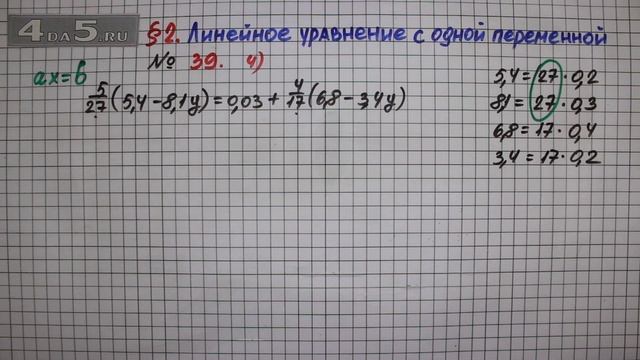 4DA5.RU
§2. Линейное уравнение с одной переменной
№ 39. 4)
ax=b
5/27(5,4-8,1y)=0,03+4/17(6,8-3,4y)
5,4=27·0,2
8,1=27·0,3
6,8=17·0,4
3,4=17·0,2